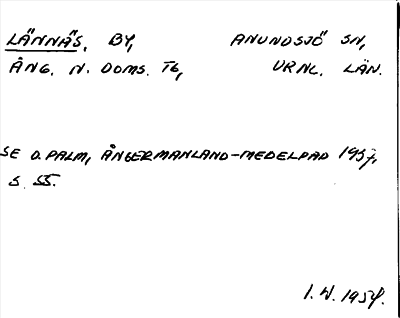 LÄNNÄS, BY, ANUNDSJÖ SN,
ÅNG. N. DOMS. TG, VRNL. LÄN.
SE D. PALM, ÅNGERMANLAND-MEDELPAD 1937,
S. 55.
I. W. 1954.